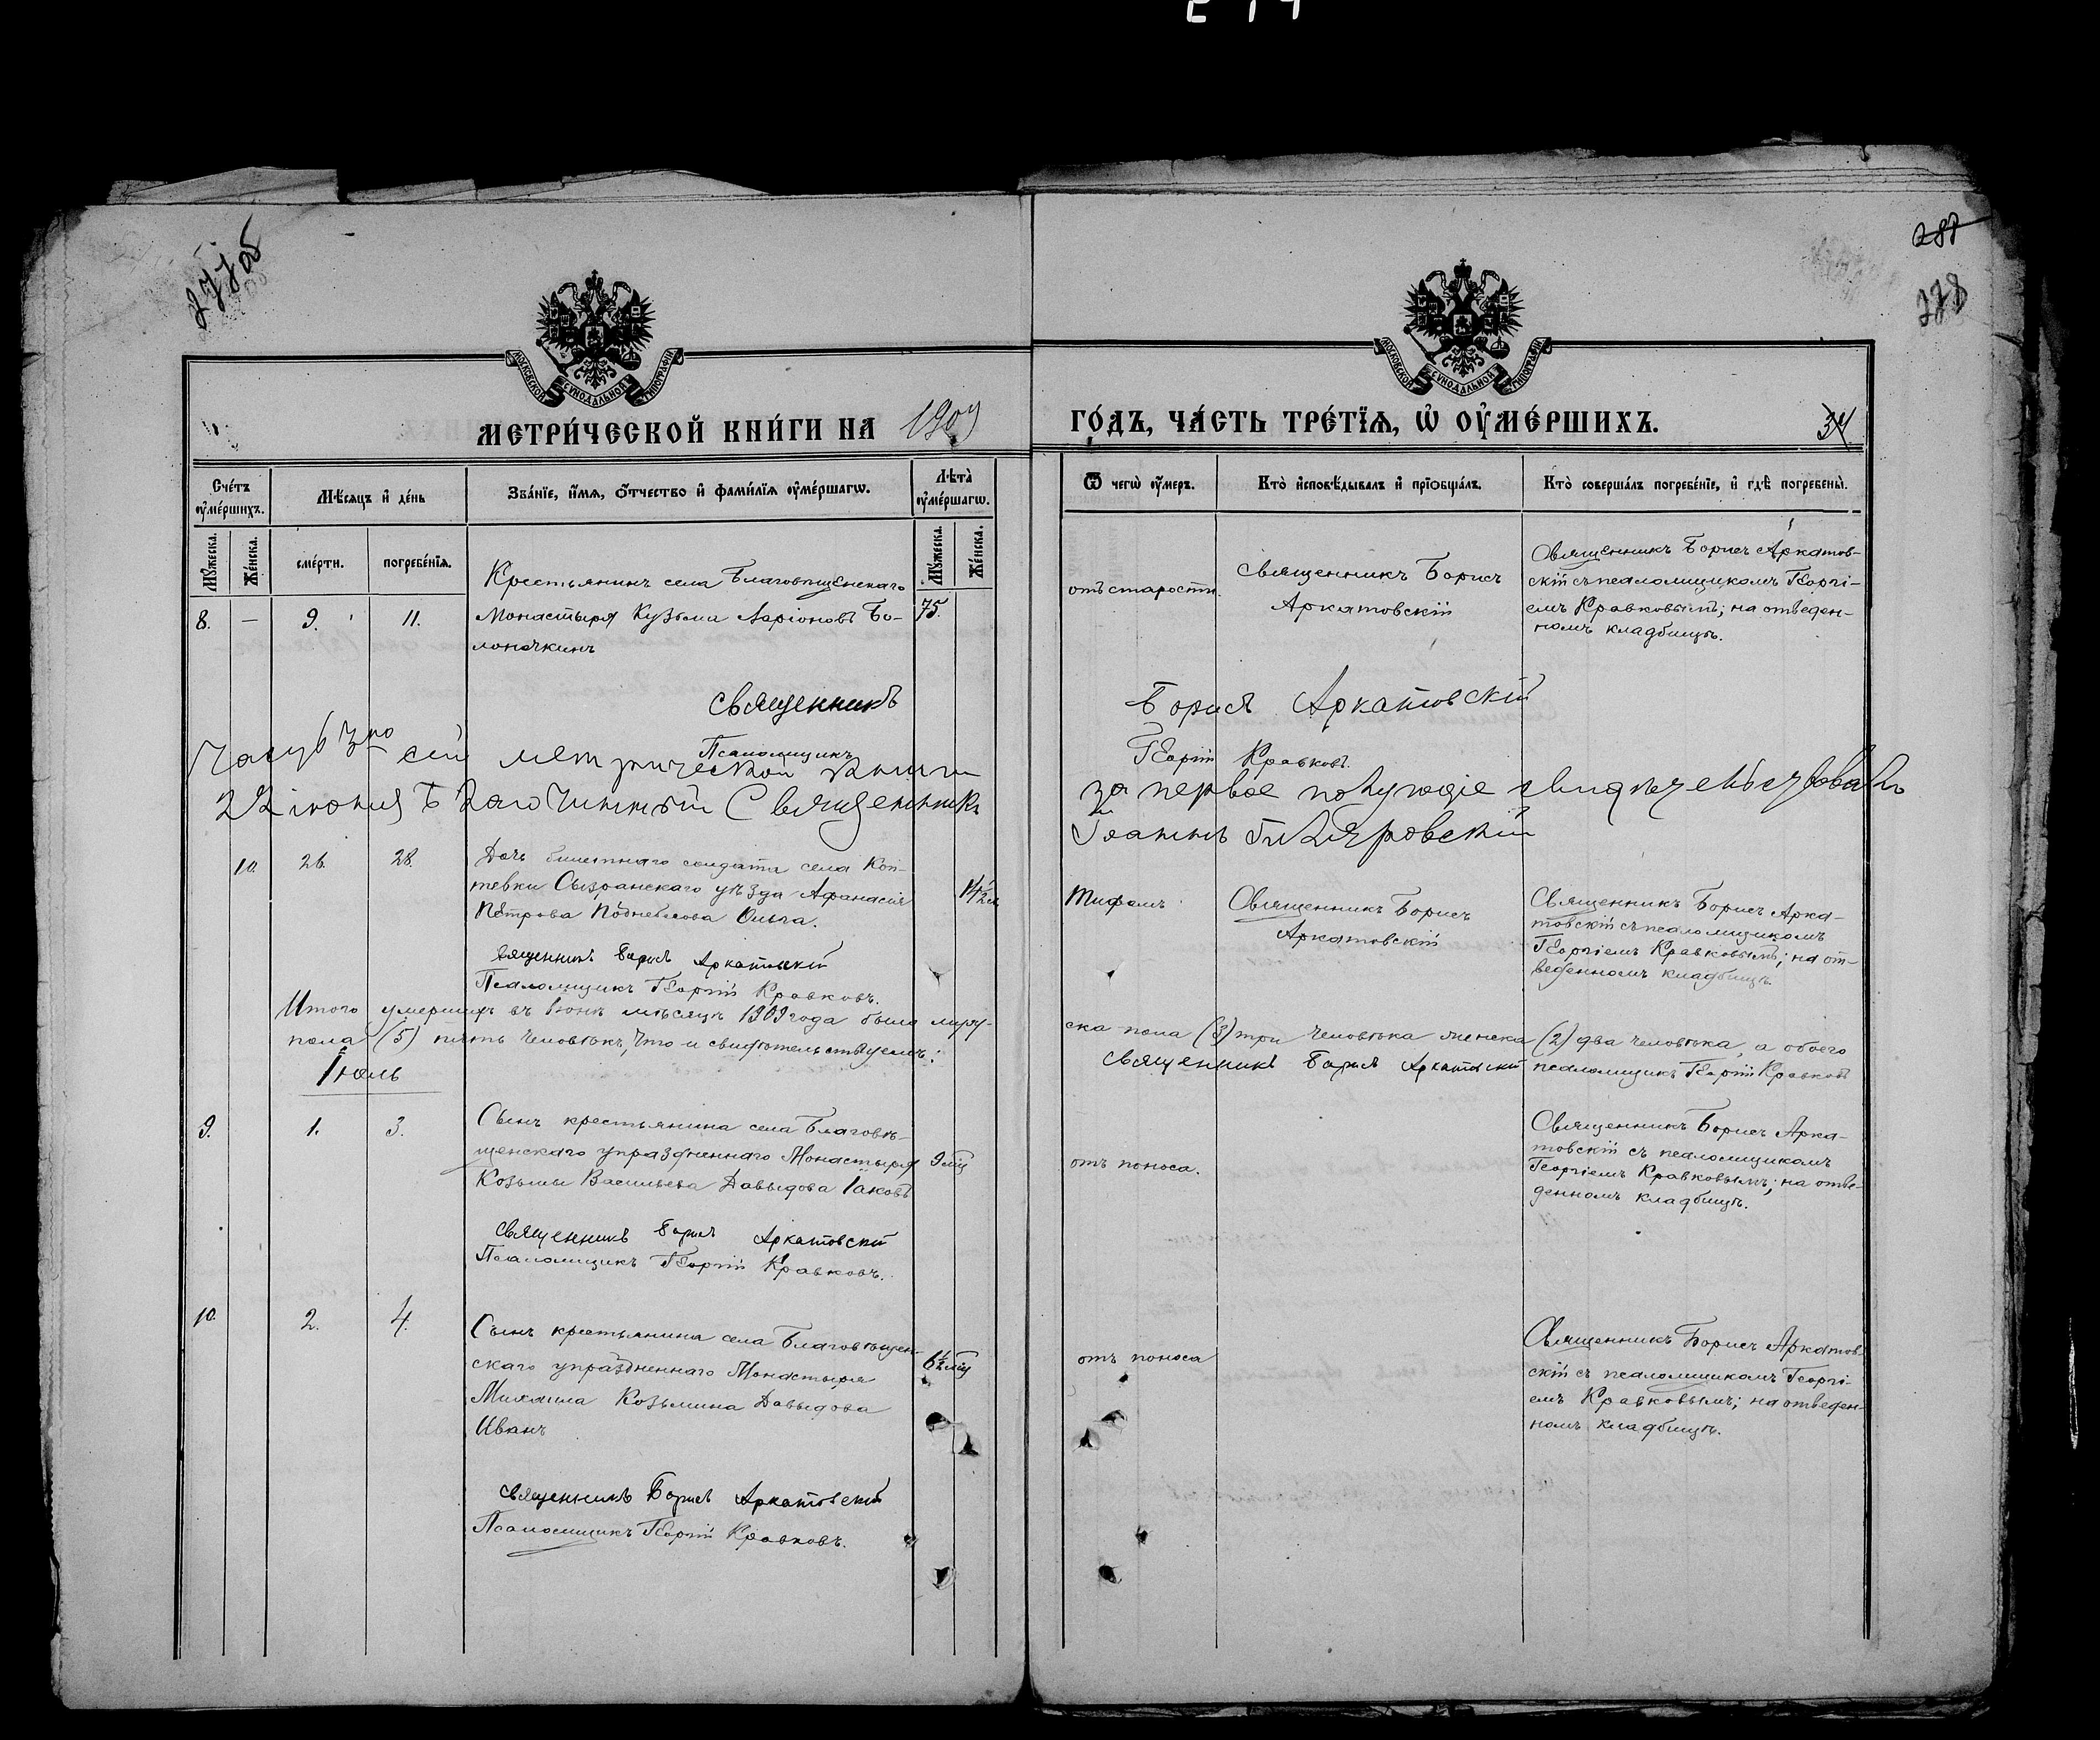 277об
288
278
МОСКОВСКОЙ СУНОДАЛЬНОЙ ТИПОГРАФІИ
МОСКОВСКОЙ СУНОДАЛЬНОЙ ТИПОГРАФІИ
МЕТРИ́ЧЕСКОЙ КНИ́ГИ НА 1909
ГО́ДЪ, ЧА́СТЬ ТРЕ́ТЇѦ, Ѡ҆ ОУ҆МЕ́РШИХЪ.
34
Сче́тъ оу҆ме́ршихъ.
Мѣ́сѧцъ и҆ де́нь
Зва́нїе, и҆́мѧ, ѻ҆́тчество и҆ фами́лїѧ оу҆ме́ршагѡ.
Лѣ́та̀ оу҆ме́ршагѡ.
Ѿ чегѡ̀ оу҆́меръ.
Кто̀ и҆сповѣ́дывалъ и҆ прїѡбща́лъ.
Кто̀ соверша́лъ погребе́нїе, и҆ гдѣ̀ погребены̀.
Мꙋ́жеска.
Же́нска.
сме́рти.
погребе́нїѧ.
Мꙋ́жеска.
Же́нска.
8. — 9. 11.
Крестьянинъ села Благовѣщенскаго
Монастыря Кузьма Ларіоновъ Бо-
лоночкинъ
75.
отъ старости.
Священникъ Борисъ
Аркатовскій
Священникъ Борисъ Аркатов-
скій съ псаломщикомъ Георгі-
емъ Кравковымъ; на отведен-
номъ кладбищѣ.
Священникъ Борисъ Аркатовскій
Псаломщикъ Георгій Кравковъ.
Часть 3ю сей метрической книги за первое полугодіе свидѣтельствовалъ
22 іюня Благочинный Священникъ Іоаннъ Гиляровскій
10. 26. 28.
Дочь билетнаго солдата села Коп-
тевки Сызранскаго уѣзда Афанасія
Петрова Ольга.
Тифомъ
Священникъ Борисъ
Аркатовскій
Священникъ Борисъ Арка-
товскій съ псаломщикомъ
Георгіемъ Кравковымъ; на от-
веденномъ кладбищѣ.
Священникъ Борисъ Аркатовскій
Псаломщикъ Георгій Кравковъ.
Итого умершихъ въ Іюнѣ мѣсяцѣ 1909 года было муже-
ска пола (3) три человѣка женска (2) два человѣка, а обоего
пола (5) пять человѣкъ, что и свидѣтельствуемъ:
Священникъ Борисъ Аркатовскій псаломщикъ Георгій Кравковъ
Іюль
9. 1. 3.
Сынъ крестьянина села Благовѣ-
щенскаго упраздненнаго Монастыря
Козьмы Васильева Давыдова Іаковъ
9 мѣ
отъ поноса.
Священникъ Борисъ Арка-
товскій съ псаломщикомъ
Георгіемъ Кравковымъ; на отве-
денномъ кладбищѣ.
Священникъ Борисъ Аркатовскій
Псаломщикъ Георгій Кравковъ.
10. 2. 4.
Сынъ крестьянина села Благовѣщен-
скаго упраздненнаго Монастыря
Михаила Козьмина Давыдова
Иванъ
6½ мѣ
отъ поноса
Священникъ Борисъ Аркатов-
скій съ псаломщикомъ Георгі-
емъ Кравковымъ; на отведен-
номъ кладбищѣ.
Священникъ Борисъ Аркатовскій
Псаломщикъ Георгій Кравковъ.